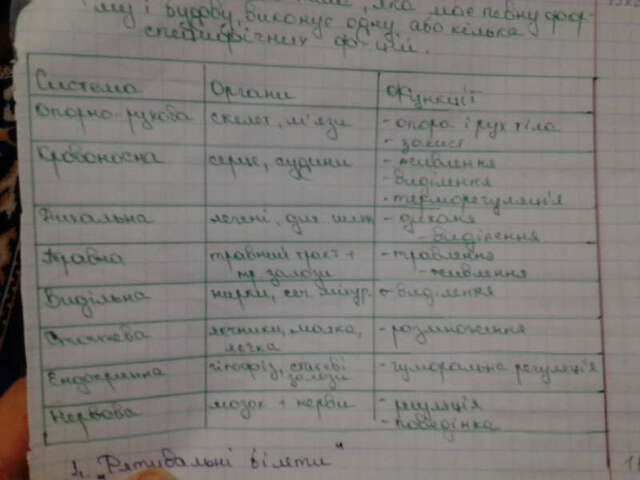 му і будову, виконує одну або кілька
специфічних ф-цій.
Система Органи Функції
Опорно-рухова скелет, м'язи - опора і рух тіла
- захист
Кровоносна серце, судини - живлення
- виділення
- терморегуляція
Дихальна легені, дих. шлях - дихання
- виділення
Травна травний тракт + - травлення
тр. залози - живлення
Видільна нирки, сеч. міхур - виділення
Статева яєчники, матка, - розмноження
Ендокринна гіпофіз, статеві - гуморальна регуляція
залози
Нервова мозок + нерви - регуляція
- поведінка
"Рятувальні білети"